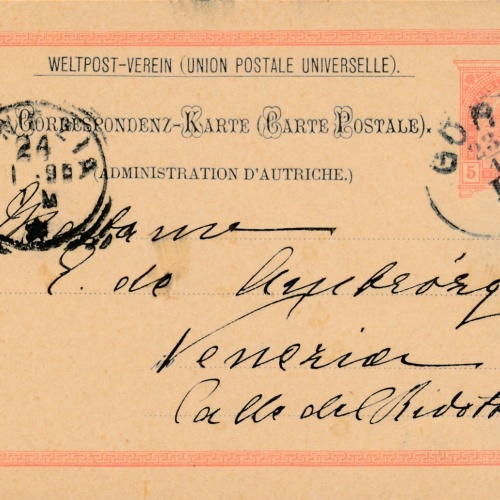 WELTPOST-VEREIN (UNION POSTALE UNIVERSELLE).
CORRESPONDENZ-KARTE (CARTE POSTALE).
(ADMINISTRATION D'AUTRICHE.)
24
GOR
23
5
Madame
E. de
Venezia
Calle del Ridott